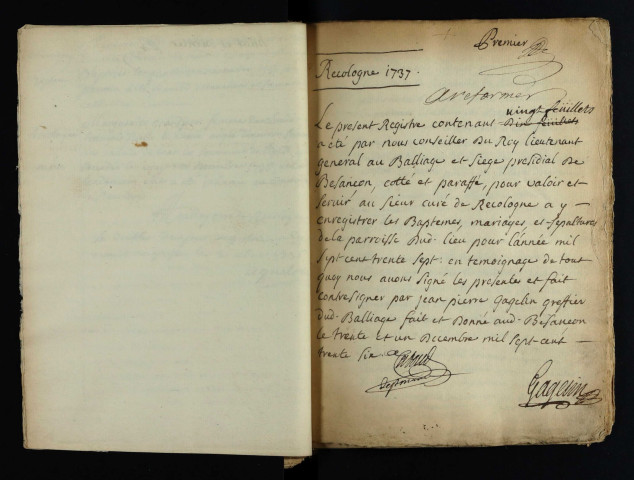 Premier
Recologne 1737.
A reformer
vingt feüillets
Le present Registre contenant Dix feüillets
a eté par nous conseiller Du Roy lieutenant
general au Balliage et siege presidial De
Besancon, cotté et paraffé, pour valoir et
servir au sieur curé de Recologne a y
enregistrer les Baptemes, mariages, et sepultures
de la parroisse Dud. lieu pour l'année mil
sept cent trente sept: en temoignage de tout
quoy nous avons signé les presentes et fait
contresigner par jean pierre Gagelin greffier
dud. Balliage fait et Donné aud. Besancon
le trente et un Decembre mil sept cent
trente six
Gagelin